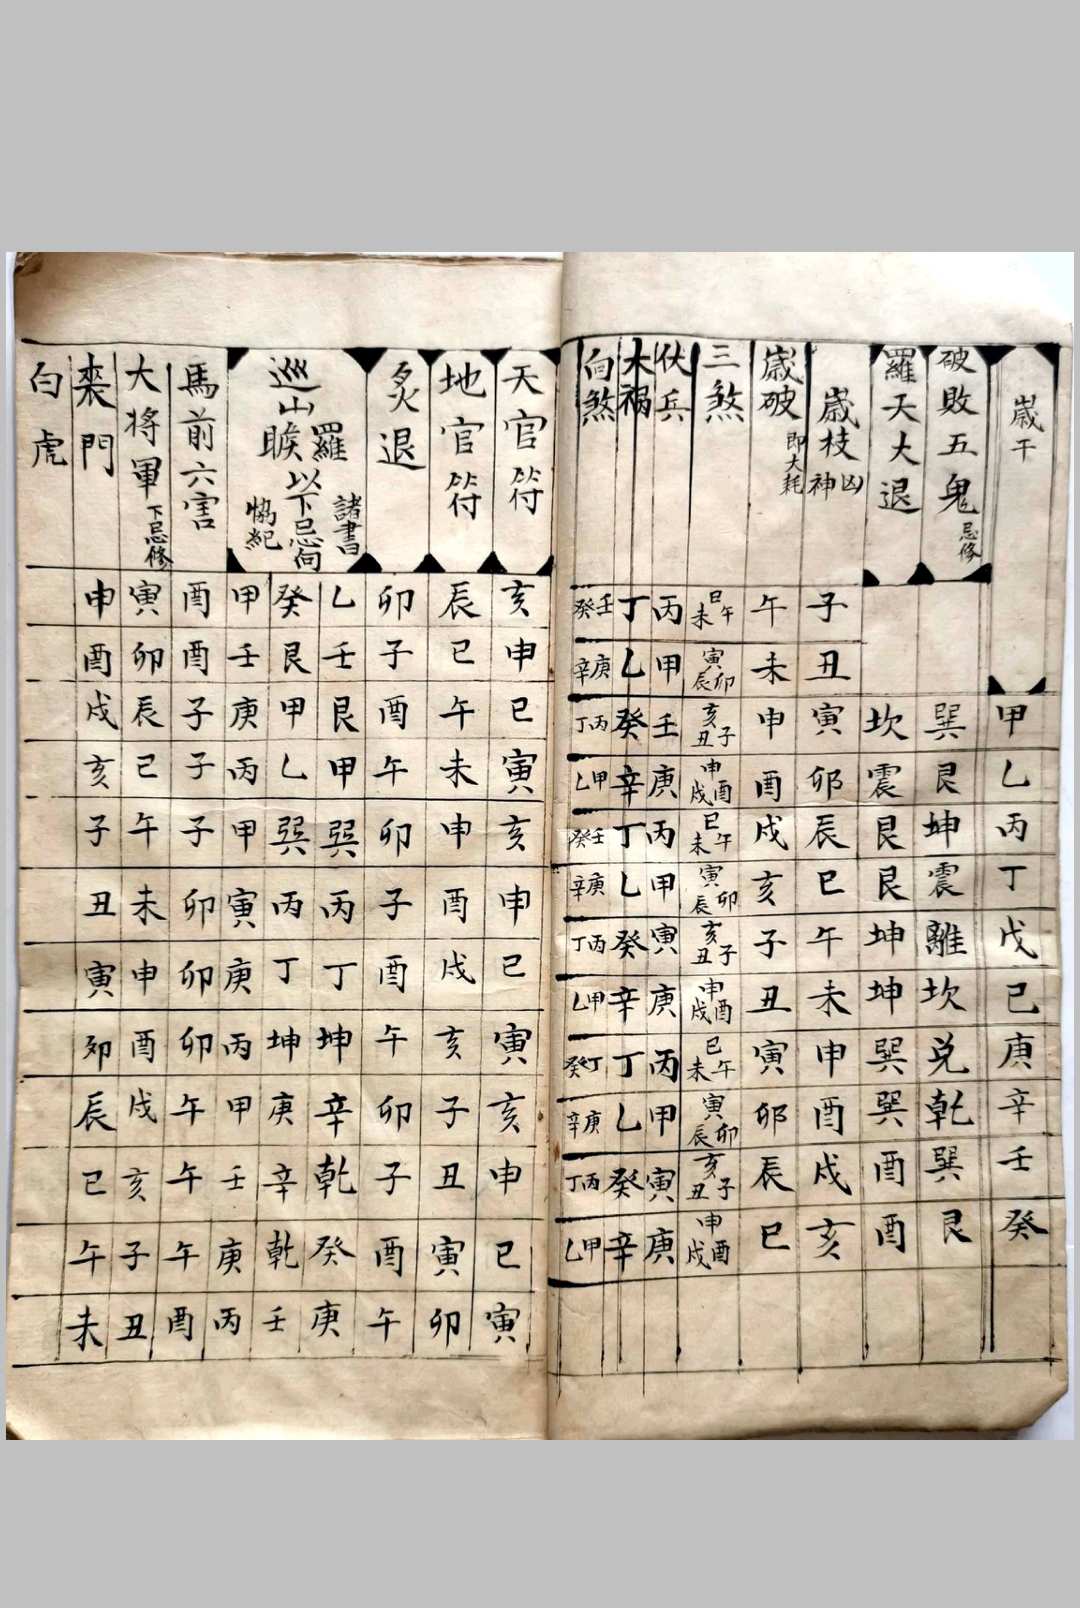 歲干
甲乙丙丁戊己庚辛壬癸
破敗五鬼 忌修
巽艮坤震離坎兌乾巽艮
羅天大退
坎震艮艮坤坤巽巽酉酉
歲枝凶神
子丑寅卯辰巳午未申酉戌亥
歲破 即大耗
午未申酉戌亥子丑寅卯辰巳
三煞
巳午未 寅卯辰 亥子丑 申酉戌 巳午未 寅卯辰 亥子丑 申酉戌 巳午未 寅卯辰 亥子丑 申酉戌
伏兵
丙甲壬庚丙甲寅庚丙甲寅庚
大禍
丁乙癸辛丁乙癸辛丁乙癸辛
向煞
壬癸 庚辛 丙丁 甲乙 壬癸 庚辛 丙丁 甲乙 丁癸 庚辛 丙丁 甲乙
天官符
亥申巳寅亥申巳寅亥申巳寅
地官符
辰巳午未申酉戌亥子丑寅卯
炙退
卯子酉午卯子酉午卯子酉午
巡山羅睺 以下忌向 諸書 協紀
乙壬艮甲巽丙丁坤辛乾癸庚
癸艮甲乙巽丙丁坤庚辛乾壬
甲壬庚丙甲寅庚丙甲壬庚丙
馬前六害
酉酉子子子卯卯卯午午午酉
大將軍 下忌修
寅卯辰巳午未申酉戌亥子丑
喪門
申酉戌亥子丑寅卯辰巳午未
白虎